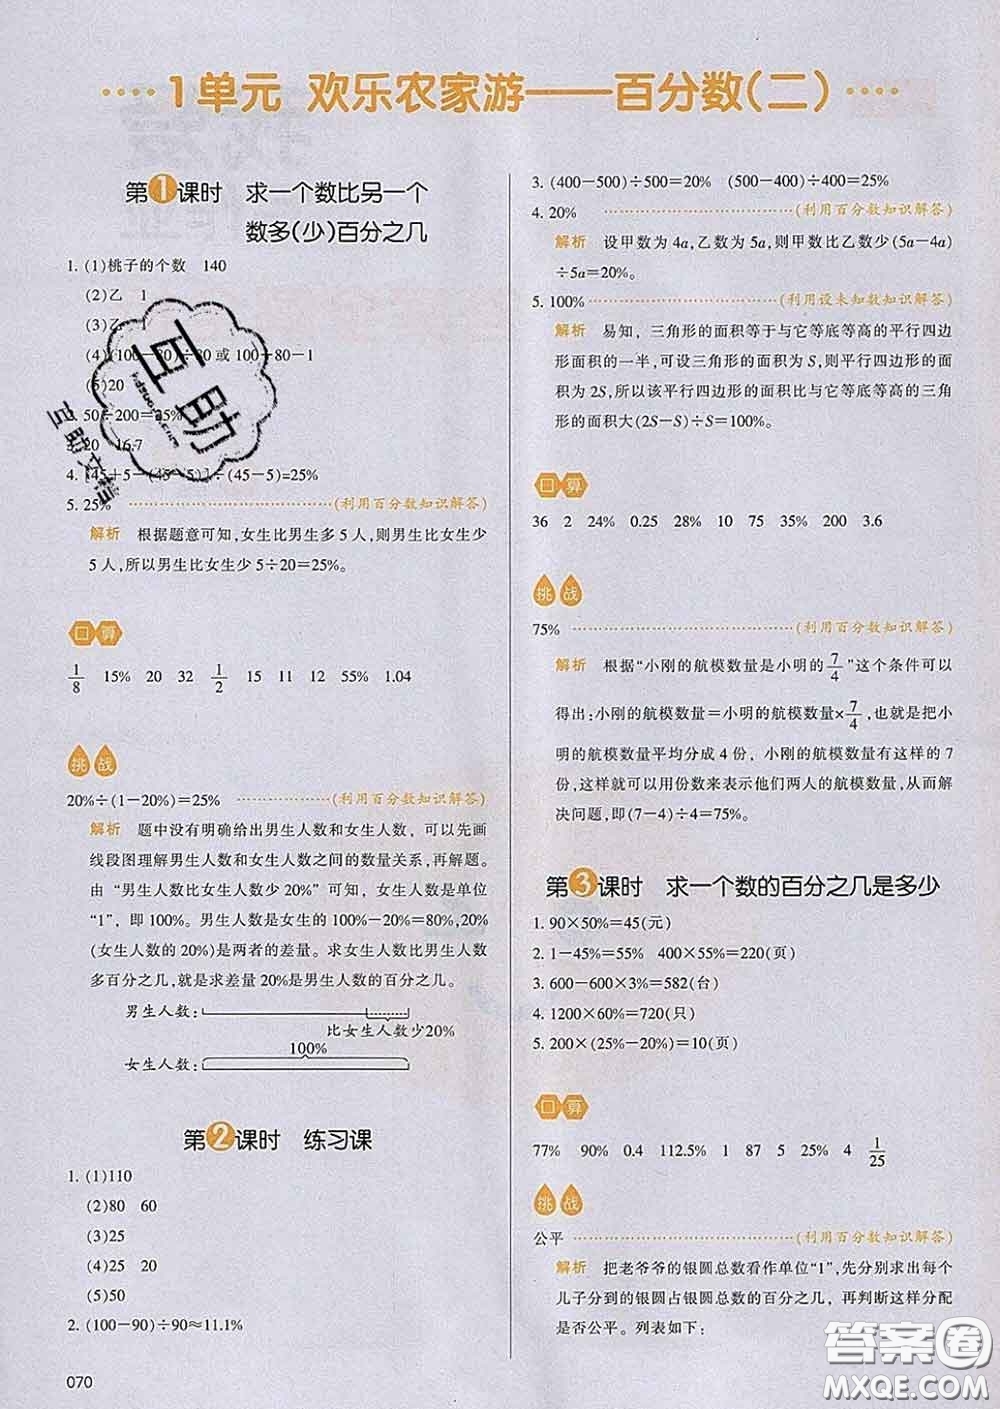 1单元 欢乐农家游——百分数(二)
第1课时 求一个数比另一个
数多(少)百分之几
1. (1)桃子的个数 140
(2)乙 1
(3)乙 1
(4)(100-80)÷80或100÷80-1
(5)20
50÷200=25%
20 16.7
4. [45+5-(45-5)]÷(45-5)=25%
5. 25% (利用百分数知识解答)
解析 根据题意可知,女生比男生多5人,则男生比女生少
5人,所以男生比女生少5÷20=25%。
口算
1/8 15% 20 32 1/2 15 11 12 55% 1.04
挑战
20%÷(1-20%)=25% (利用百分数知识解答)
解析 题中没有明确给出男生人数和女生人数，可以先画
线段图理解男生人数和女生人数之间的数量关系,再解题。
由“男生人数比女生人数少20%”可知，女生人数是单位
“1”，即100%。男生人数是女生的100%-20%=80%,20%
(女生人数的20%)是两者的差量。求女生人数比男生人数
多百分之几,就是求差量20%是男生人数的百分之几。
男生人数:
比女生人数少20%
100%
女生人数:
第2课时 练习课
1. (1)110
(2)80 60
(3)25
(4)25 20
(5)50
2. (100-90)÷90≈11.1%
070
3. (400-500)÷500=20% (500-400)÷400=25%
4. 20% (利用百分数知识解答)
解析 设甲数为4a,乙数为5a,则甲数比乙数少(5a-4a)
÷5a=20%。
5. 100% (利用设未知数知识解答)
解析 易知，三角形的面积等于与它等底等高的平行四边
形面积的一半,可设三角形的面积为S,则平行四边形的面
积为2S,所以该平行四边形的面积比与它等底等高的三角
形的面积大(2S-S)÷S=100%。
口算
36 2 24% 0.25 28% 10 75 35% 200 3.6
挑战
75% (利用百分数知识解答)
解析 根据“小刚的航模数量是小明的7/4”这个条件可以
得出:小刚的航模数量=小明的航模数量×7/4,也就是把小
明的航模数量平均分成4份，小刚的航模数量有这样的7
份,这样就可以用份数来表示他们两人的航模数量,从而解
决问题,即(7-4)÷4=75%。
第3课时 求一个数的百分之几是多少
1. 90×50%=45(元)
2. 1-45%=55% 400×55%=220(页)
3. 600-600×3%=582(台)
4. 1200×60%=720(只)
5. 200×(25%-20%)=10(页)
口算
77% 90% 0.4 112.5% 17 87 5 25% 4 1/25
挑战
公平 (利用百分数知识解答)
解析 把老爷爷的银圆总数看作单位“1”,先分别求出每个
儿子分到的银圆占银圆总数的百分之几，再判断这样分配
是否公平。列表如下:
互助
互助文档
答案圈
MXQE.COM